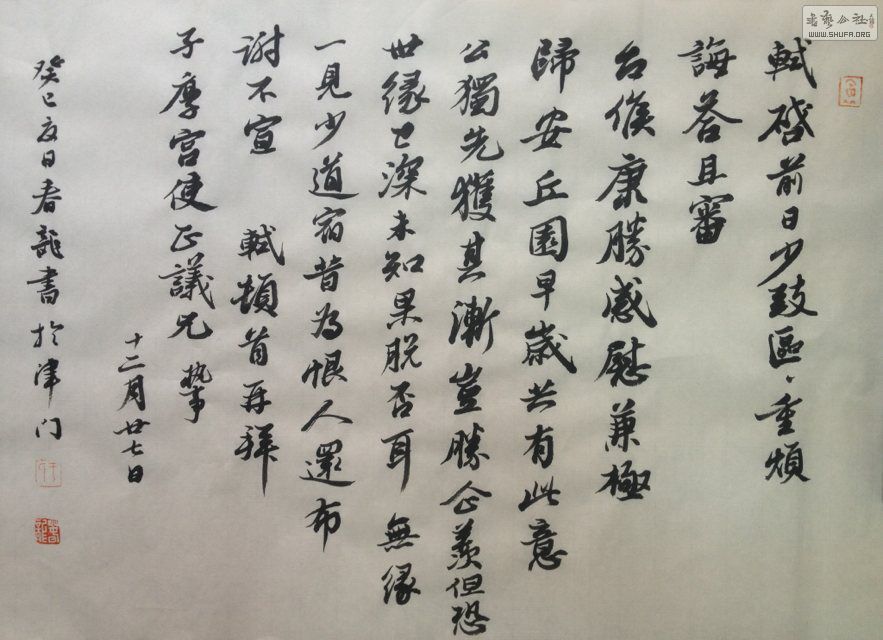 軾啓前日少致區、重煩
誨答且審
台候康勝感慰兼極
歸安丘園早歲共有此意
公獨先獲其漸豈勝企羨但恐
世緣已深未知果脫否耳無緣
一見少道宿昔為恨人還布
謝不宣 軾頓首再拜
子厚宮使正議兄 執事
十二月廿七日
癸巳夏日春龍書於津门
書藝公社
WWW.SHUFA.ORG